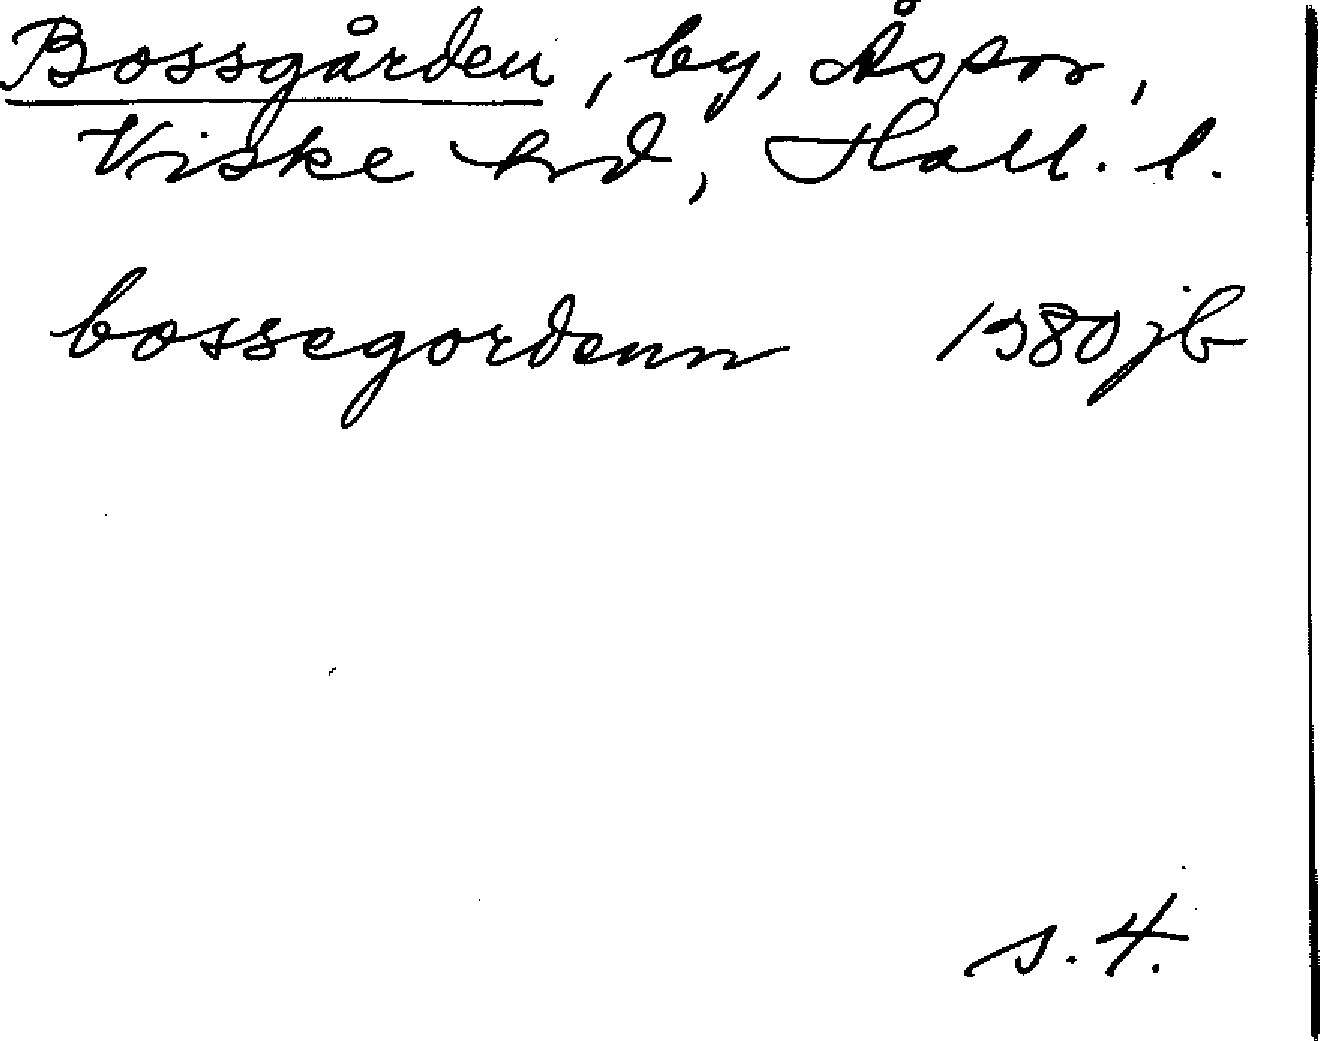 Bossgården, by, Ås sn,
Viske hd, Hall. l.
bossegordenn 1580 jb
s. 4.